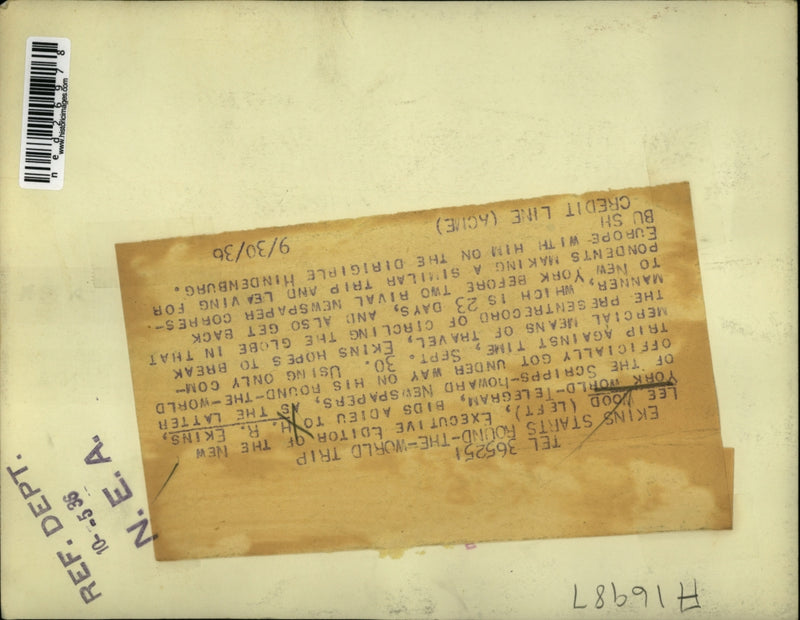 TEL 365251
EKINS STARTS ROUND-THE-WORLD TRIP
LEE WOOD (LEFT), EXECUTIVE EDITOR OF THE NEW
YORK WORLD-TELEGRAM, BIDS ADIEU TO H. R. EKINS,
OF THE SCRIPPS-HOWARD NEWSPAPERS, AS THE LATTER
OFFICIALLY GOT UNDER WAY ON HIS ROUND-THE-WORLD
TRIP AGAINST TIME, SEPT. 30. USING ONLY COM-
MERCIAL MEANS OF TRAVEL, EKINS HOPES TO BREAK
THE PRESENTRECORD OF CIRCLING THE GLOBE IN THAT
MANNER, WHICH IS 23 DAYS, AND ALSO GET BACK
TO NEW YORK BEFORE TWO RIVAL NEWSPAPER CORRES-
PONDENTS MAKING A SIMILAR TRIP AND LEAVING FOR
EUROPE WITH HIM ON THE DIRIGIBLE HINDENBURG.
BU SH
CREDIT LINE (ACME) 9/30/36
REF. DEPT.
10-5-36
N. E. A.
A16987
ned26978
www.historicimages.com